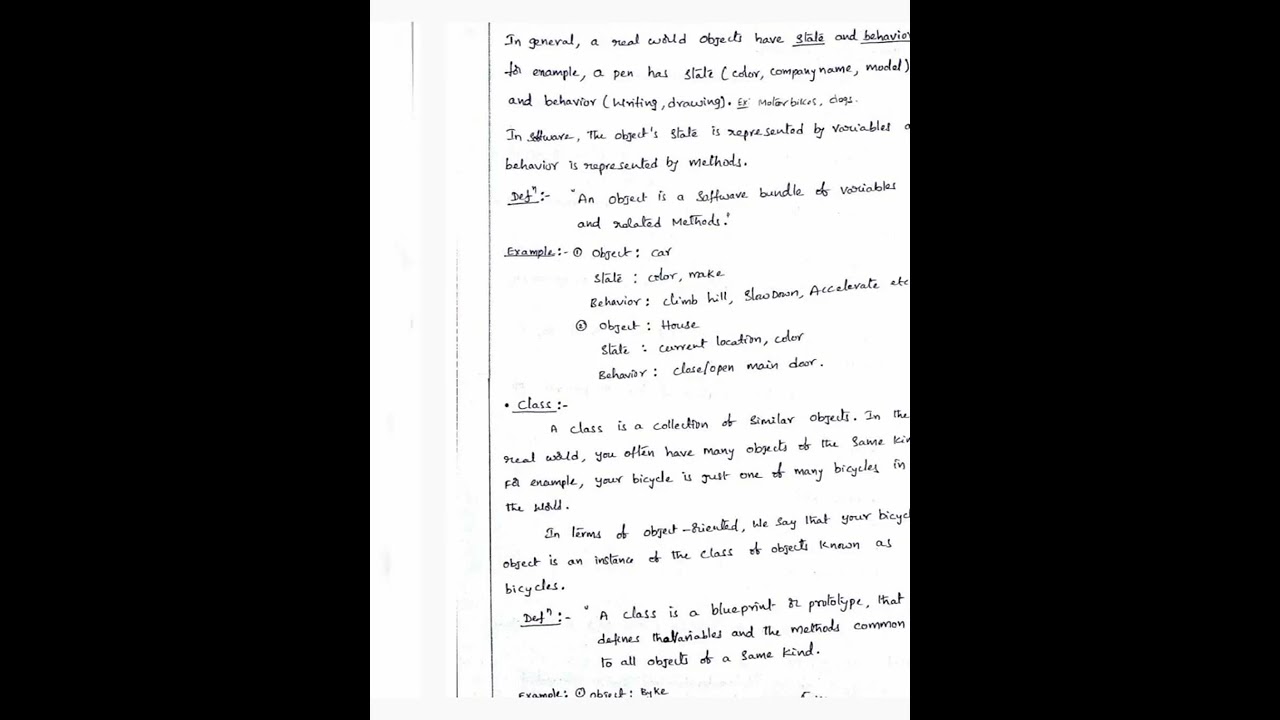 In general, a real world objects have state and behavior
for enample, a pen has state (color, company name, model)
and behavior (writing, drawing). Ex: Motorbikes, dogs.
In software, the object's state is represented by variables a
behavior is represented by methods.
Defⁿ:- "An object is a software bundle of variables
and related Methods."
Example:- ① Object: car
State : color, make
Behavior: climb hill, SlowDown, Accelerate etc
② Object: House
State : current location, color
Behavior: close/open main door.
• Class:-
A class is a collection of similar objects. In the
real world, you often have many objects of the same kin
For enample, your bicycle is just one of many bicycles in
the world.
In terms of object-oriented, we say that your bicycl
object is an instance of the class of objects known as
bicycles.
Defⁿ:- "A class is a blueprint or prototype, that
defines the variables and the methods common
to all objects of a same kind.
Example: ① object: Byke